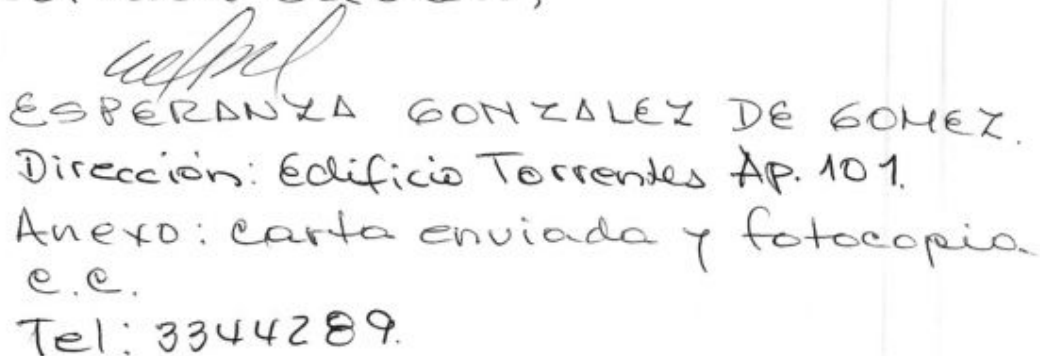 ESPERANZA GONZALEZ DE GOMEZ.
Dirección: Edificio Torrentes Ap. 101.
Anexo: carta enviada y fotocopia.
c.c.
Tel: 3344289.